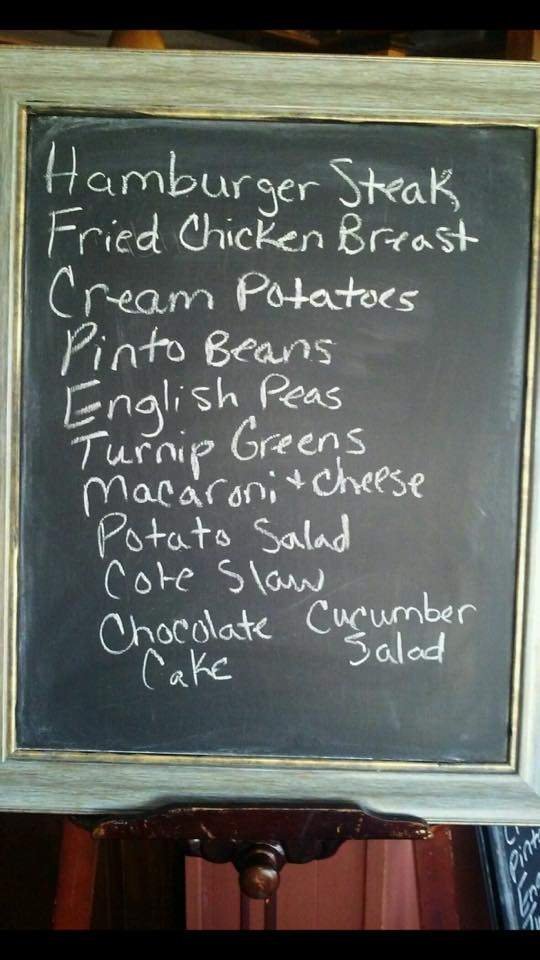 Hamburger Steak
Fried Chicken Breast
Cream Potatoes
Pinto Beans
English Peas
Turnip Greens
Macaroni + Cheese
Potato Salad
Cole Slaw
Chocolate
Cake
Cucumber
Salad